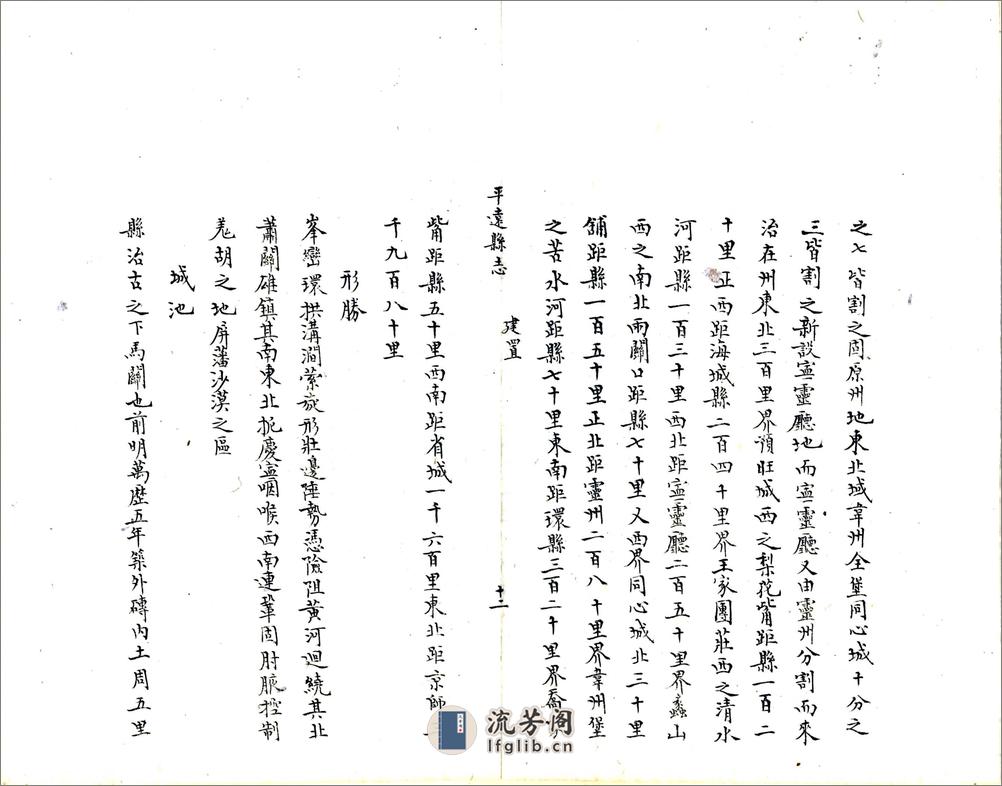 之七皆割之固原州地東北域韋州全堡同心城十分之
三皆割之新設寧靈廳地而寧靈廳又由靈州分割而來
治在州東北三百里界預旺城西之梨花觜距縣一百二
十里正西距海城縣二百四十里界王家團莊西之清水
河距縣一百三十里西北距寧靈廳二百五十里界蠡山
西之南北兩關口距縣七十里又西界同心城北三十里
舖距縣一百五十里正北距靈州二百八十里界韋州堡
之苦水河距縣七十里東南距環縣三百二十里界喬
平遠縣志
建置
十二
觜甫距縣五十里西南距省城一千六百里東北距京師
千九百八十里
形勝
峯巒環拱溝澗縈旋形壯邊陲勢憑險阻黃河迴繞其北
蕭關雄鎮其南東北扼慶寧咽喉西南連鞏固肘腋控制
羌胡之地屏藩沙漠之區
城池
縣治古之下馬關也前明萬歷五年築外磚內土周五里
流芳阁
lfglib.cn